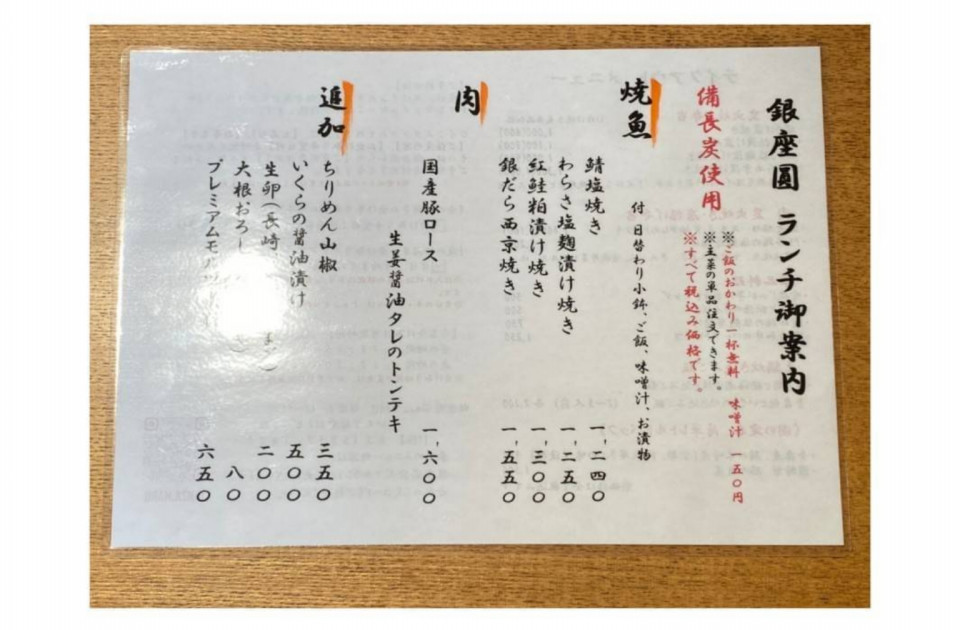 銀座圓 ランチ御案内
備長炭使用
※ご飯のおかわり一杯無料 味噌汁 一五〇円
※主菜の単品注文できます。
※すべて税込み価格です。
焼魚
付 日替わり小鉢、ご飯、味噌汁、お漬物
鯖塩焼き 一,二四〇
わらさ塩麹漬け焼き 一,二五〇
紅鮭粕漬け焼き 一,三〇〇
銀だら西京焼き 一,五五〇
肉
国産豚ロース
生姜醤油タレのトンテキ 一,六〇〇
追加
ちりめん山椒 三五〇
いくらの醤油漬け 五〇〇
生卵(長崎 二〇〇
大根おろし 八〇
プレミアムモルツ 六五〇